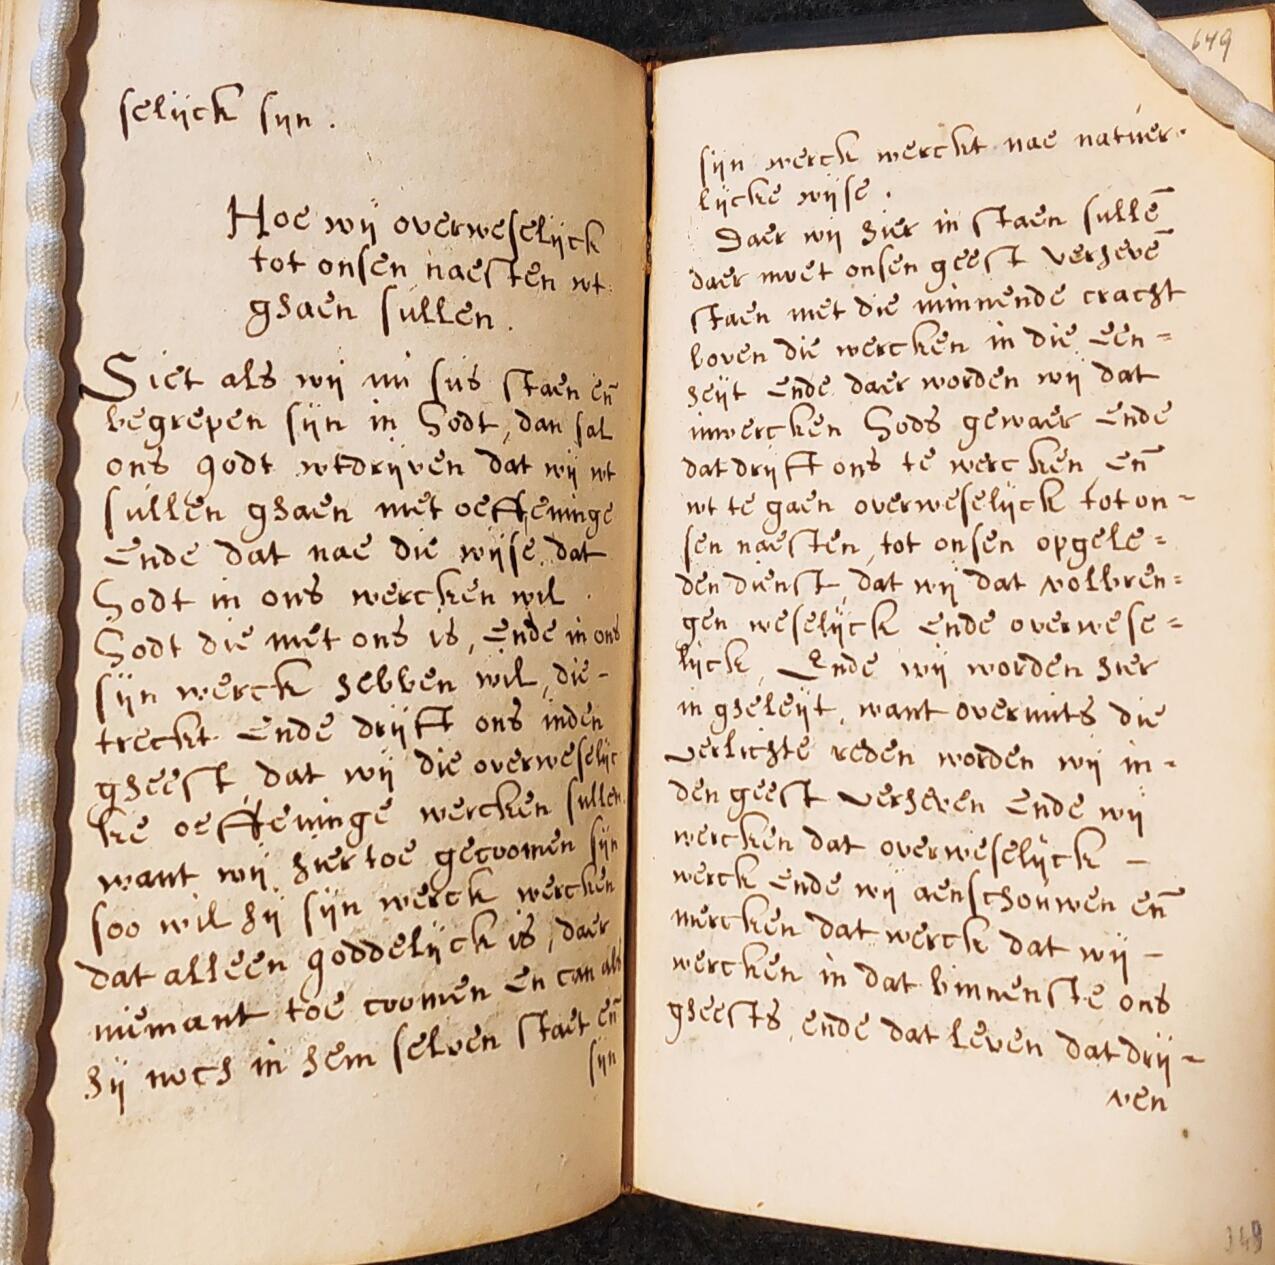 selijck sijn.
Hoe wij overweselijck
tot onsen naesten wt
ghaen sullen.
Siet als wij nu sus staen en̄
begrepen sijn in Godt, dan sal
ons godt wtdrijven dat wij wt
sullen ghaen met oeffeninge
Ende dat nae die wijse dat
Godt in ons wercken wil.
Godt die met ons is, Ende in ons
sijn werck hebben wil, die-
treckt Ende drijft ons inden
gheest, dat wij die overweselijc
ke oeffeninge wercken sullen
want wij hier toe gecoomen sijn
soo wil hij sijn werck wercken
dat alleen goddelijck is, daer
niemant toe coomen En can als
hij noch in hem selven staet en̄
sijn
649
sijn werck werckt nae natuer-
lijcke wijse.
Daer wij hier in staen sullē
daer moet onsen geest verhevē
staen met die minnende cracht
boven die wercken in die Een=
heijt Ende daer worden wij dat
inwercken Gods gewaer Ende
dat drijft ons te wercken En̄
wt te gaen overweselijck tot on-
sen naesten, tot onsen opgele=
den dienst, dat wij dat volbren=
gen weselijck Ende overwese=
lijck, Ende wij worden hier
in gheleijt, want overmits die
verlichte reden worden wij in-
den geest verheven Ende wij
wercken dat overweselijck -
werck Ende wij aenschouwen en̄
mercken dat werck dat wij -
wercken in dat binnenste ons
gheests, ende dat leven dat drij-
ven
349